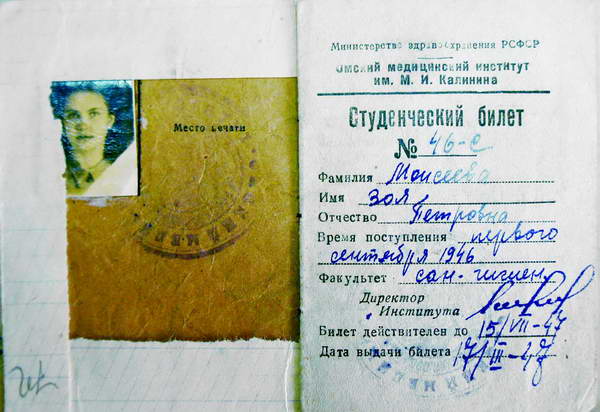 Место печати
Министерство здравоохранения РСФСР
Омский медицинский институт
им. М. И. Калинина
Студенческий билет
№ 46-с
Фамилия Моисеева
Имя Зоя
Отчество Петровна
Время поступления первого
сентября 1946
Факультет сан-гигиен
Директор
Института
Билет действителен до 15/VII-47
Дата выдачи билета 17/III-47